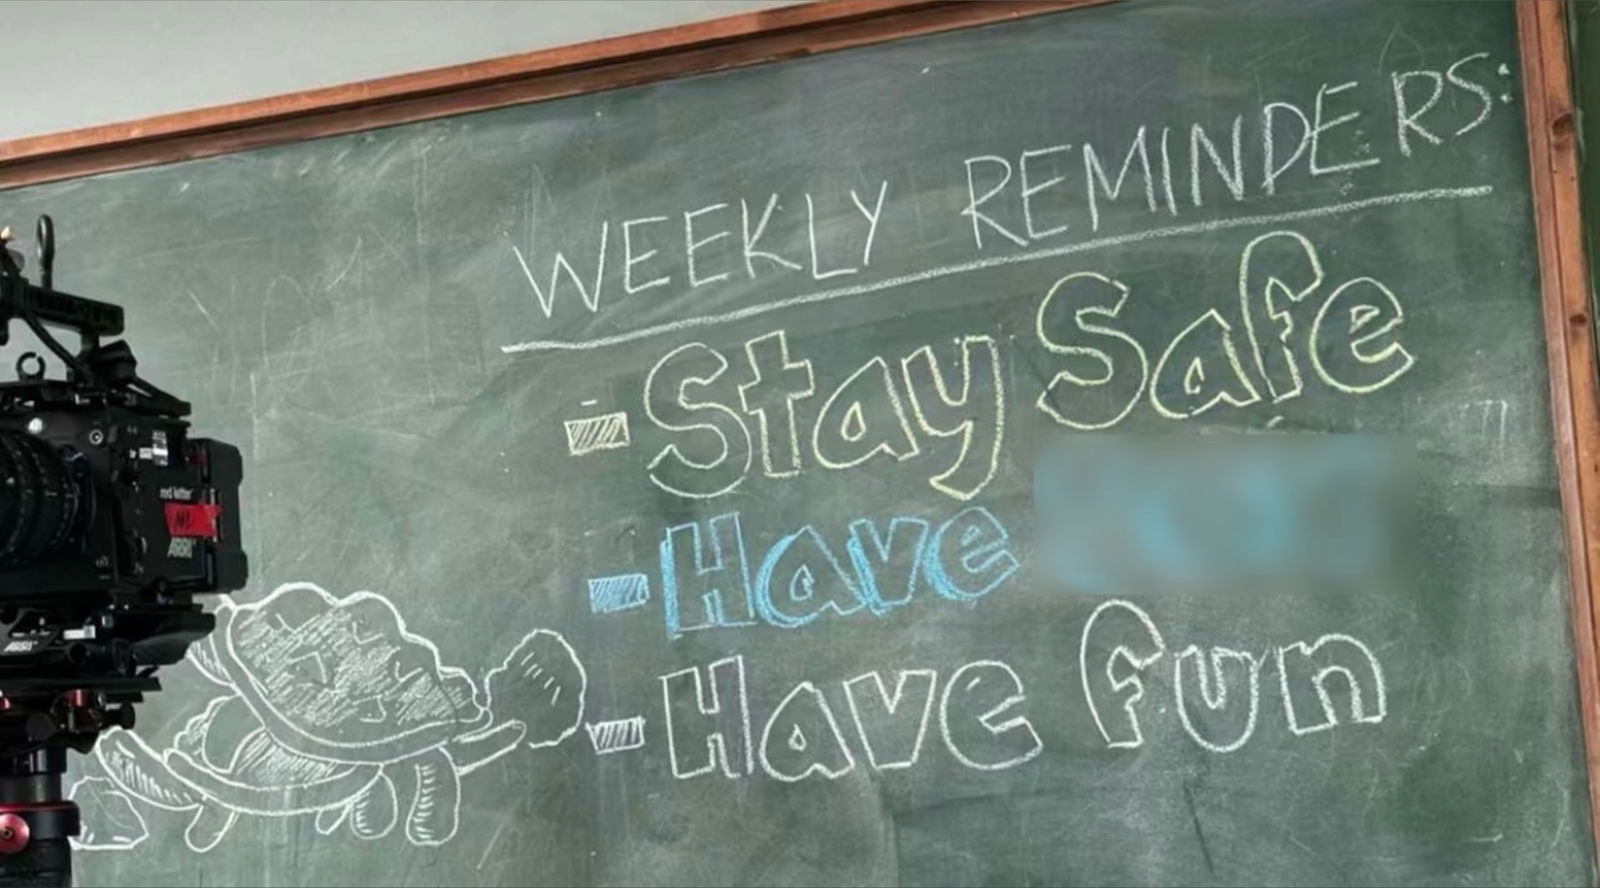 WEEKLY REMINDERS:
- Stay Safe
- Have
- Have fun
red letter
ARRI
ARRI